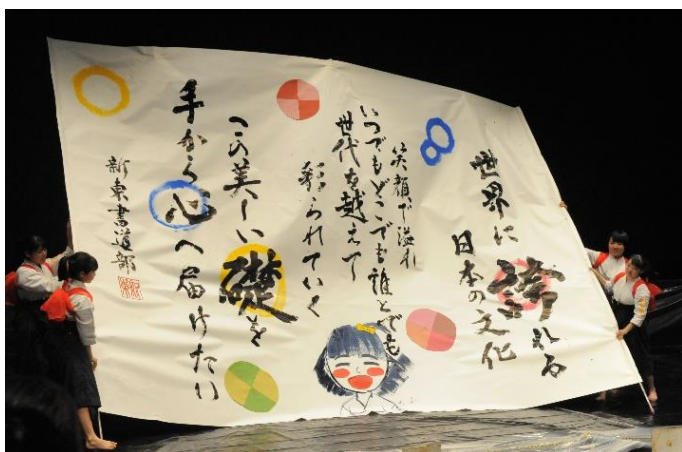 世界に誇れる
日本の文化
笑顔で溢れ
いつでもどこでも誰とでも
世代を越えて
彩られていく
この美しい礎を
手から心へ届けたい
新東書道部